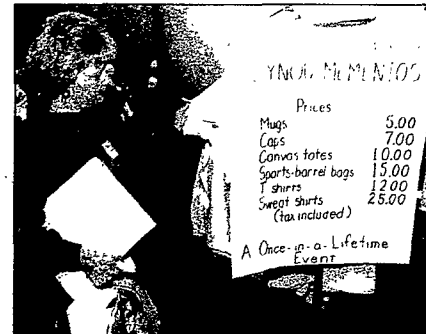 YNOD MEMENTOS
Prices
Mugs 5.00
Caps 7.00
Canvas totes 10.00
Sports-barrel bags 15.00
T shirts 12.00
Sweat shirts 25.00
(tax included)
A Once-in-a-Lifetime
Event